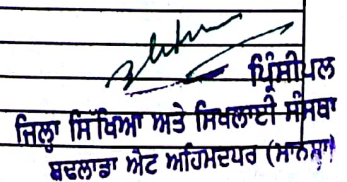 ਪ੍ਰਿੰਸੀਪਲ
ਜਿਲ੍ਹਾ ਸਿੱਖਿਆ ਅਤੇ ਸਿਖਲਾਈ ਸੰਸਥਾ
ਬੁਢਲਾਡਾ ਐਟ ਅਹਿਮਦਪੁਰ (ਮਾਨਸਾ)